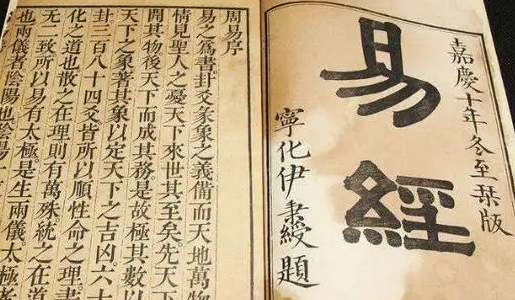 嘉慶十年冬至栞版
易經
寧化伊秉綬題
周易序
易之爲書卦爻彖象之義備而天地萬物
情見聖人之憂天下來世其至矣先天下
開其物後天下而成其務是故極其數以
天下之象著其象以定天下之吉凶六十
卦三百八十四爻皆所以順性命之理盡
化之道也散之在理則有萬殊統之在道
无二致所以易有太極是生兩儀太極者
也兩儀者陰陽也陰陽一